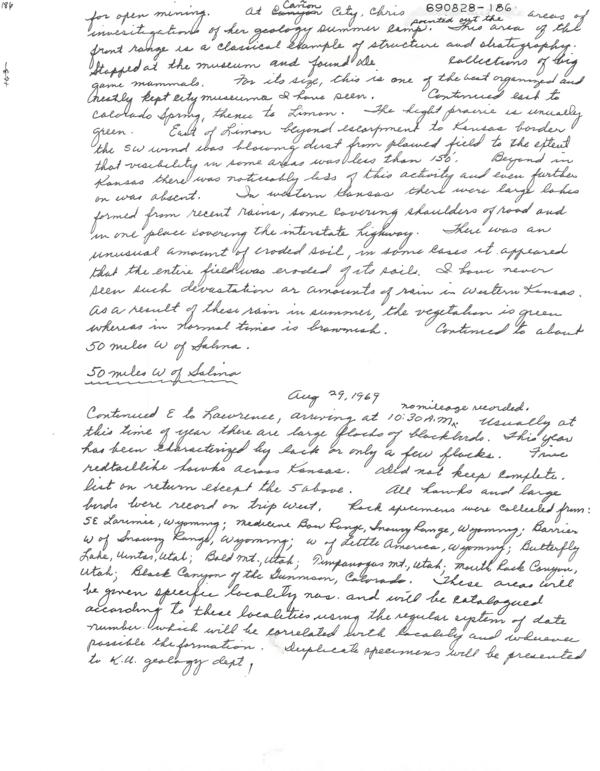 186
690828-186
for open mining. At Canyon Cañon City, Chris pointed out the areas of
investigations of her geology summer camp. This area of the
front range is a classical example of structure and stratigraphy.
Stopped at the museum and found collections of big
game mammals. For its size, this is one of the best organized and
neatly kept city museums I have seen. Continued east to
Colorado Spring, thence to Limon. The hight prairie is unusually
green. East of Limon beyond escarpment to Kansas border
the SW wind was blowing dust from plowed field to the extent
that visibility in some areas was less than 150'. Beyond in
Kansas there was noticeably less of this activity and even further
on was absent. In western Kansas there were large lakes
formed from recent rains, some covering shoulders of road and
in one place covering the interstate highway. There was an
unusual amount of eroded soil, in some cases it appeared
that the entire field was eroded of its soils. I have never
seen such devastation or amounts of rain in Western Kansas.
As a result of these rain in summer, the vegetation is green
whereas in normal times is brownish. Continued to about
50 miles W of Salina.
50 miles W of Salina
Aug 29, 1969
no mileage recorded.
Continued E to Lawrence, arriving at 10:30 A.M. Usually at
this time of year there are large flocks of blackbirds. This year
has been characterized by lack or only a few flocks. Five
redtaillike hawks across Kansas. Did not keep complete
list on return except the 5 above. All hawks and large
birds were record on trip west. Rock specimens were collected from:
SE Laramie, Wyoming; Medicine Bow Range, Snowy Range, Wyoming; Barrier
W of Snowy Range, Wyoming; W of Little America, Wyoming; Butterfly
Lake, Uintas, Utah; Bald Mt., Utah; Timpanogus Mt, Utah; mouth Rock Canyon,
Utah; Black Canyon of the Gunnison, Colorado. These areas will
be given specific locality nos. and will be catalogued
according to these localities using the regular system of date
number which will be correlated with locality and wherever
possible the formation. Duplicate specimens will be presented
to K.U. geology dept.